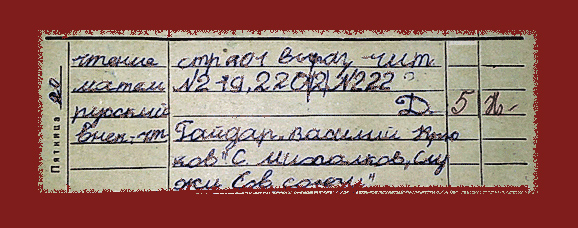 Пятница 20
чтение стр 201 выраз. чит.
матем №219, 220(2), №222
русский D. 5
внек. чт Гайдар „Василий Крю
ков" С. Михалков „Слу
жу Сов. союзу"